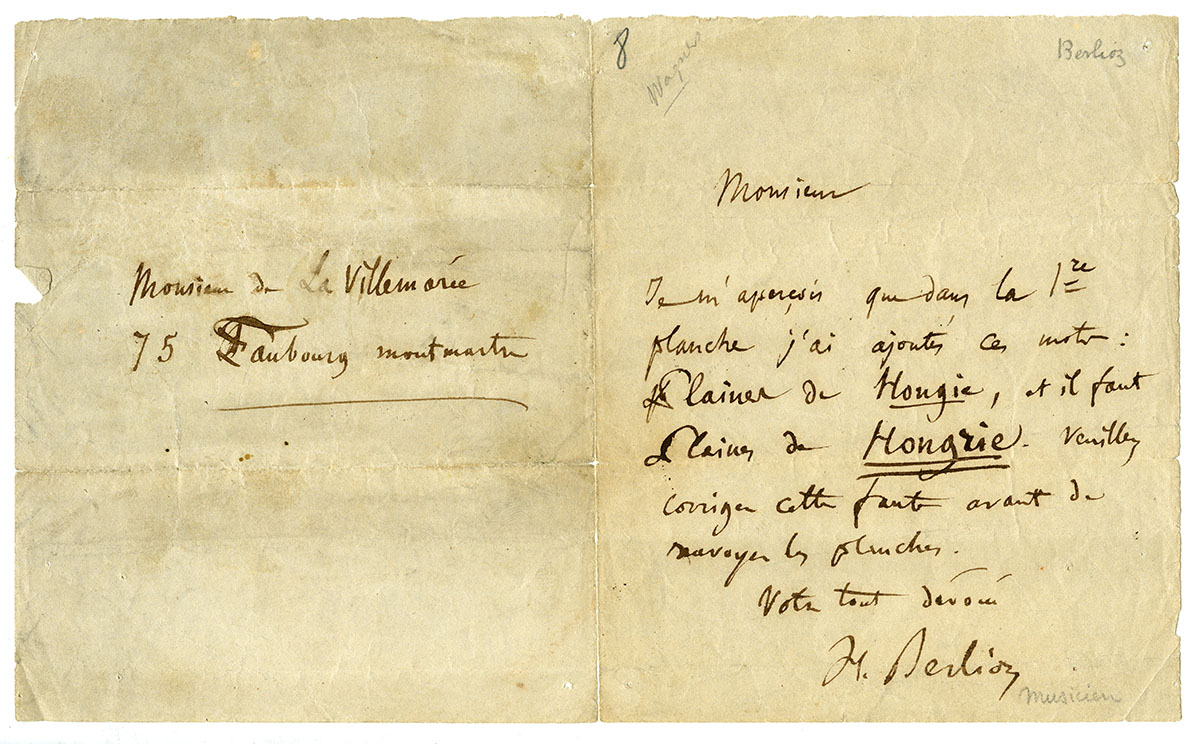 Monsieur de La Villemarée
75 Faubourg montmartre
8
Wagner
Berlioz
Monsieur
Je m'aperçois que dans la 1re
planche j'ai ajoutés ces mots :
Plaines de Hongie, et il faut
Plaines de Hongrie. Veuillez
corriger cette faute avant de
renvoyer les planches.
Votre tout dévoué
H. Berlioz
musicien